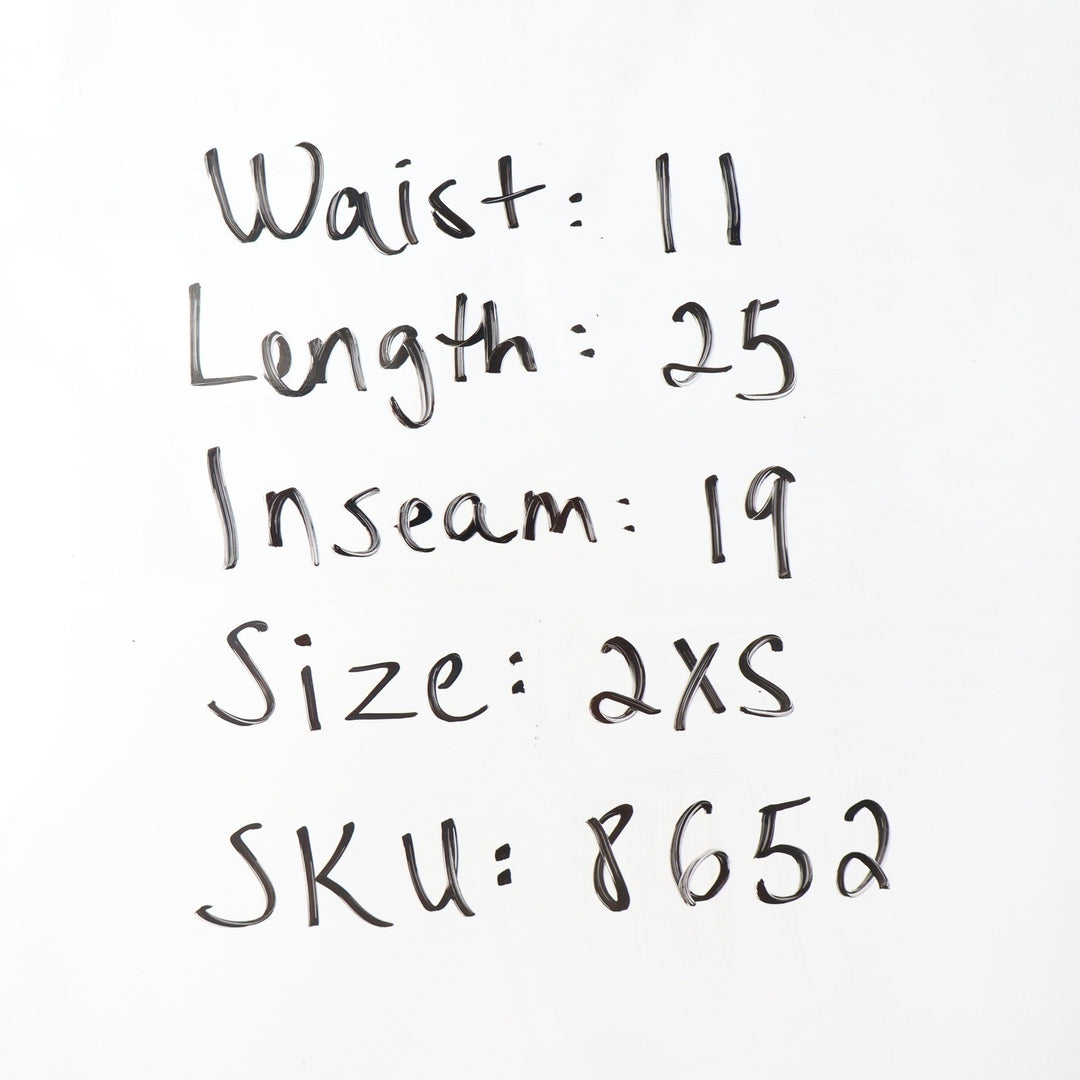 Waist: 11
Length: 25
Inseam: 19
Size: 2XS
SKU: 8652